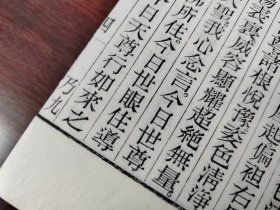 偏袒右
根悅豫姿色清淨
裏威容顯耀超絕無量。
聖我心念言。今日世尊
所住今日世眼住導
今日天尊行如來之
四 乃九